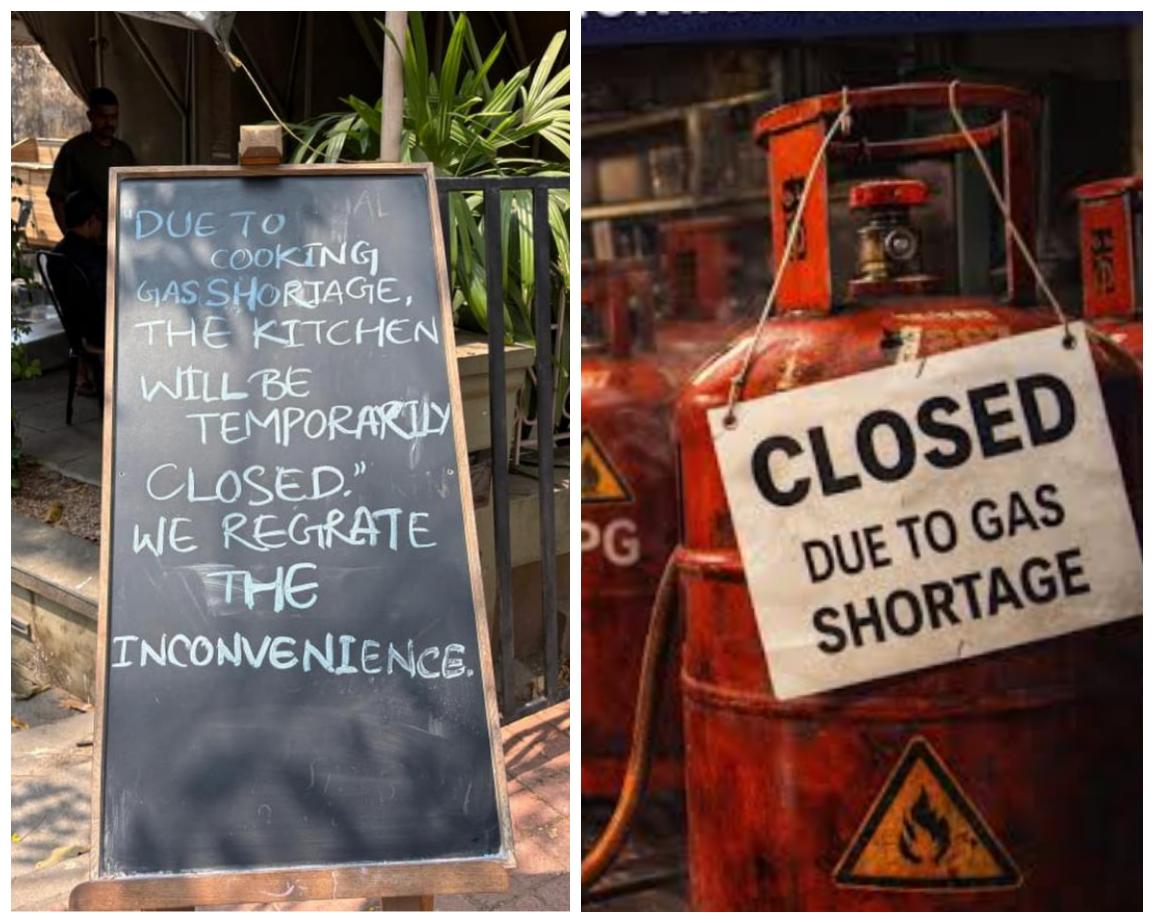 "DUE TO
COOKING
GAS SHORTAGE,
THE KITCHEN
WILL BE
TEMPORARILY
CLOSED."
WE REGRATE
THE
INCONVENIENCE.
CLOSED
DUE TO GAS
SHORTAGE
PG